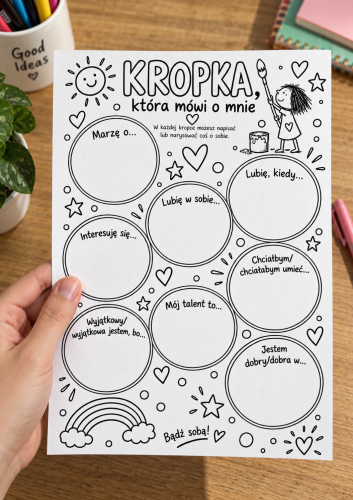 Good
Ideas
KROPKA,
która mówi o mnie
W każdej kropce możesz napisać
lub narysować coś o sobie.
Marzę o...
Lubię, kiedy...
Lubię w sobie...
Interesuję się...
Chciałbym/
chciałabym umieć...
Mój talent to...
Wyjątkowy/
wyjątkowa jestem, bo...
Jestem
dobry/dobra w...
Bądź sobą!